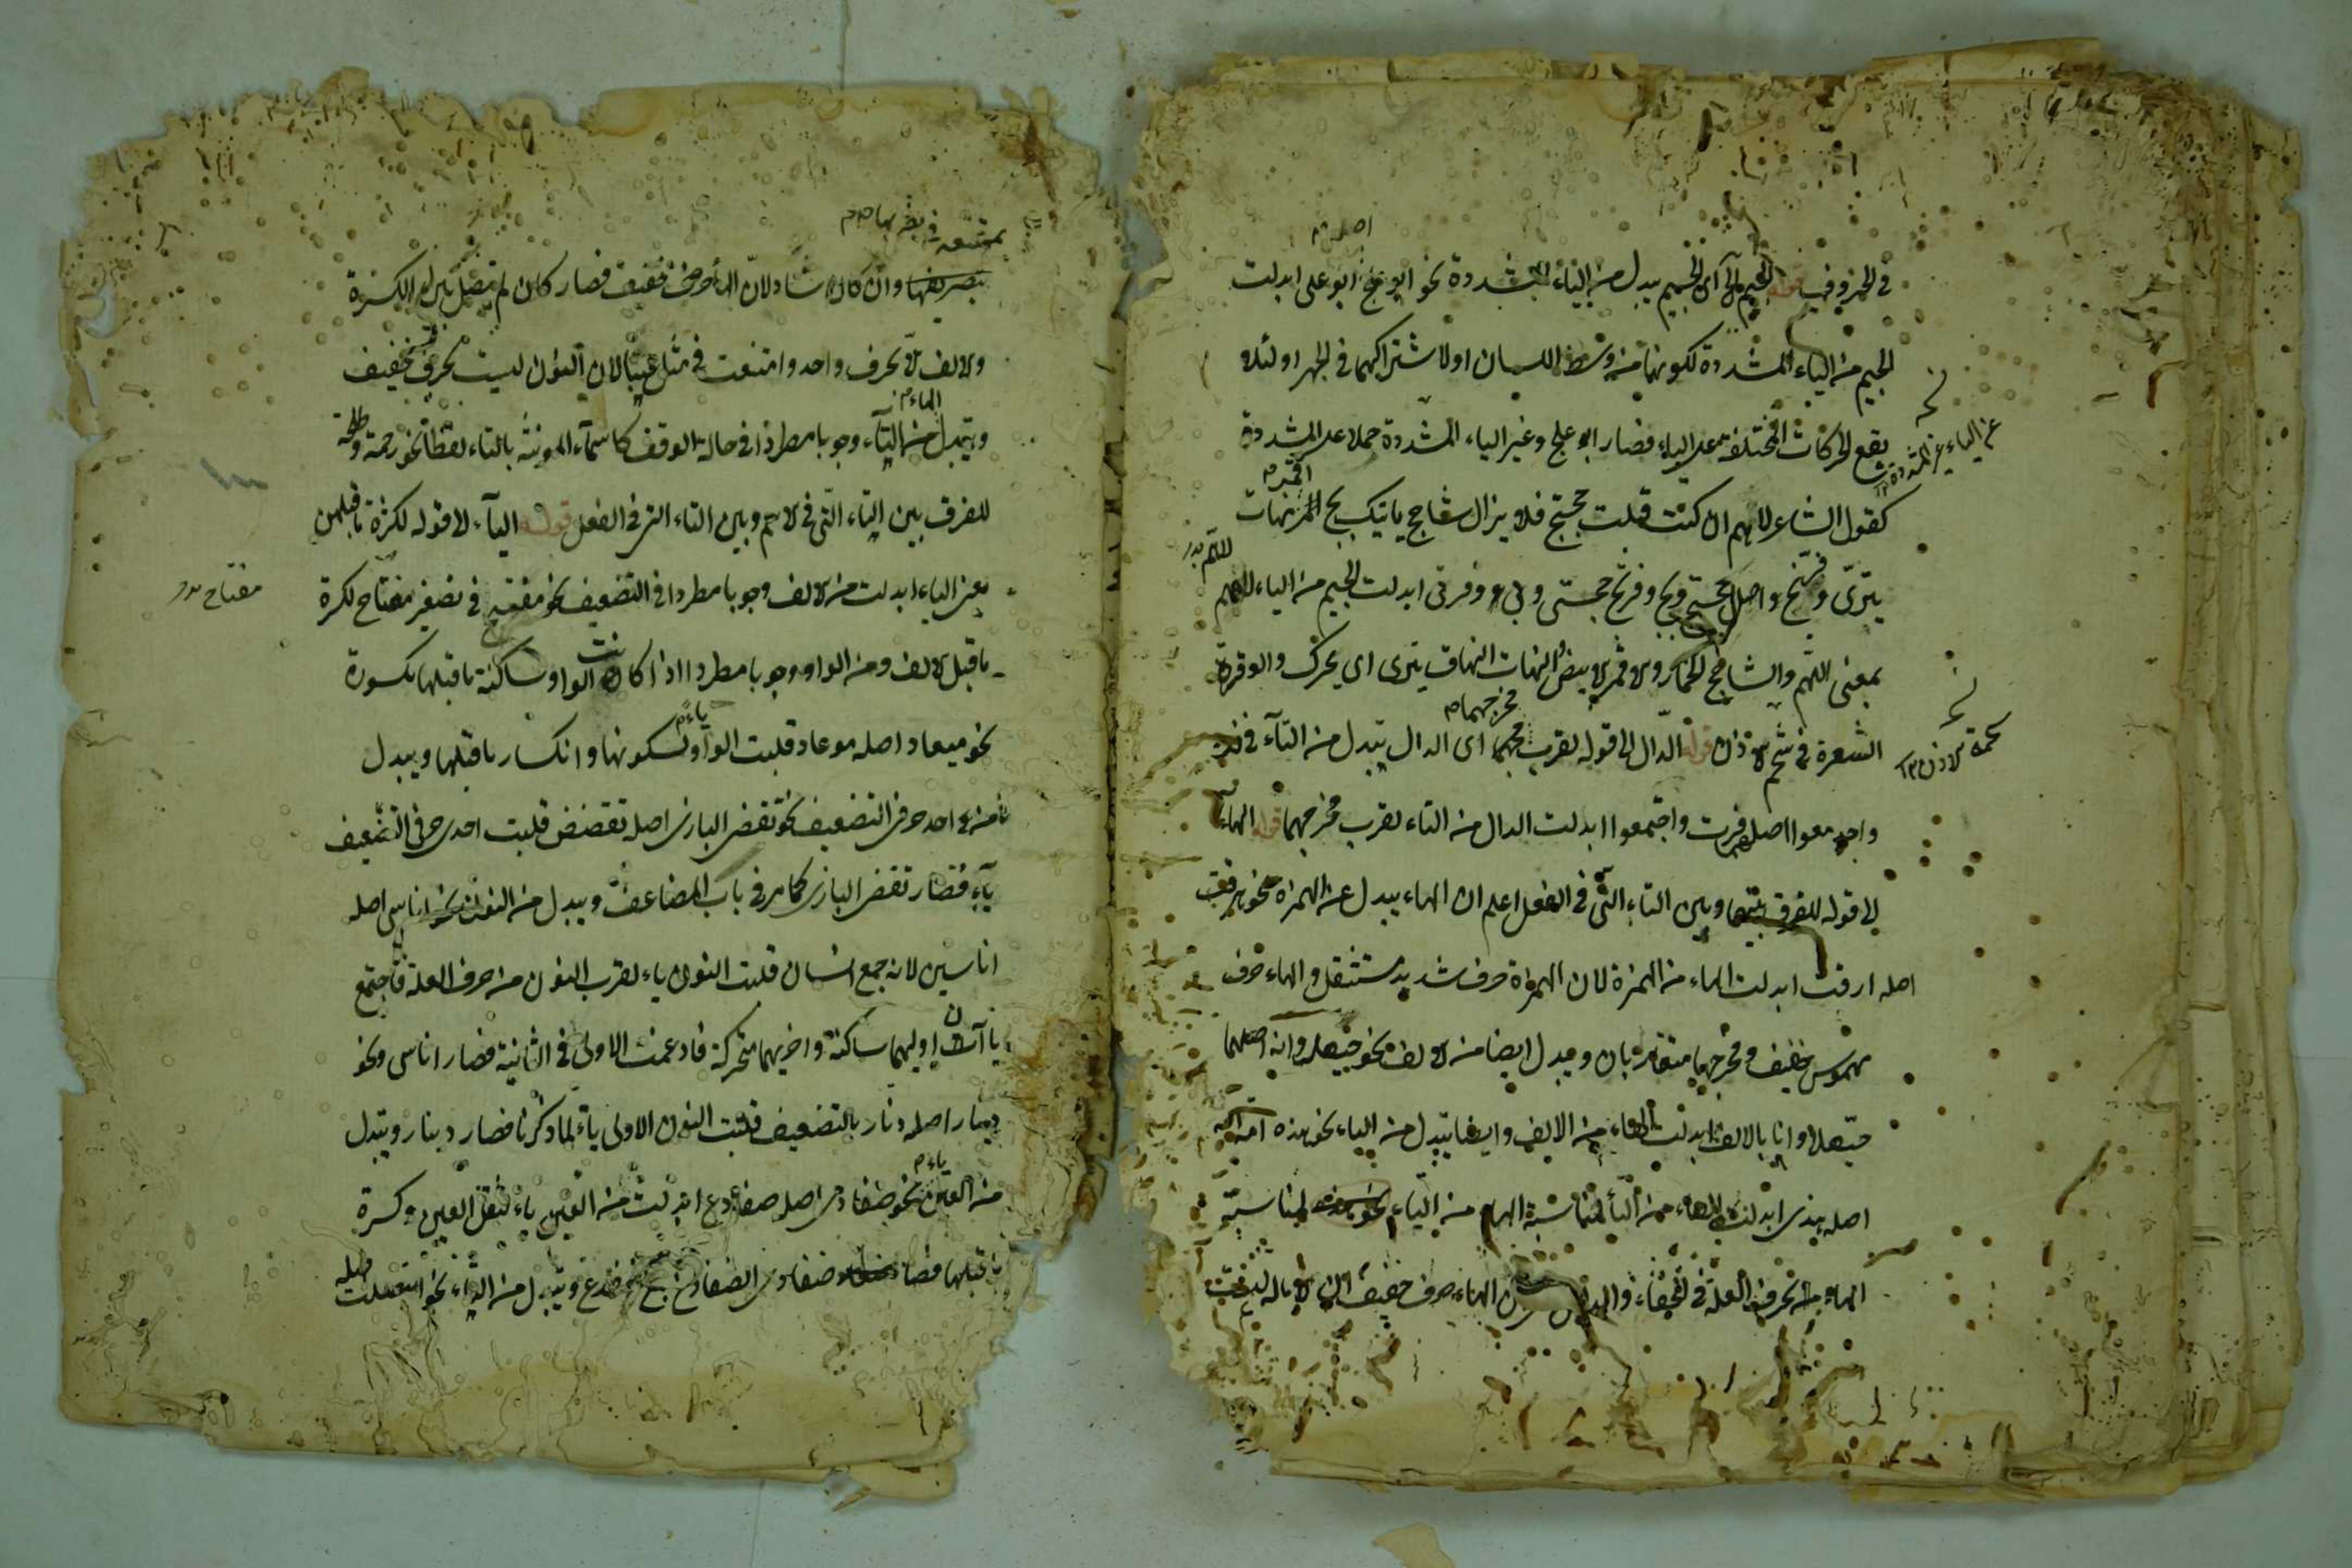 اصله م
في الحروف قوله الجيم الخ اى الجيم يبدل من الياء المشددة نحو ابو علج ابو على ابدلت
الجيم من الياء المشددة لكونهما من وسط اللسان او لاشتراكهما في الجهر او لئلا
يقع الحركات المختلفة على الياء فصار ابو علج وغير الياء المشددة حملا على المشددة
عن الياء غير المشددة
كقول الشاعر لاهم ان كنت قبلت حجتج فلا يزال شاحج ياتيك بج اقمر نهات
ينزى وفرتج واصل حجتج وبج وفرتج حجتى وبى وفرتى ابدلت الجيم من الياء لاهم
اللهم
بمعنى اللهم والشاحج الحمار والاقمر الابيض النهات النهاق ينزى اى يحرك والوفرة
مخرجهما م
الشعرة في شحمة الاذن قوله الدال الى قوله لقرب مخرجهما اى الدال يبدل من التاء في فزد
شحمة الاذن
واجدمعوا اصله فزت واجتمعوا ابدلت الدال من التاء لقرب مخرجهما قوله الهاء
الى قوله للفرق بينها وبين التاء التى في الفعل اعلم ان الهاء يبدل عن الهمزة نحو هرقت
اصله ارقت ابدلت الهاء من الهمزة لان الهمزة حرف شديد مستثقل والهاء حرف
مهموس خفيف ومخرجهما متقاربان ويبدل ايضا من الالف نحو حيهله وانه اصلهما
حيهلا وانا بالالف ابدلت الهاء من الالف وايضا يبدل من الياء نحو هذه امة الله
اصله هذى ابدلت الهاء من الياء لمناسبة الهاء من الياء لمناسبة
الهاء بحرف العلة في الخفاء الهاء حرف خفيف
بممتنعة في بضربها م م
بصريفها وان كان شاذ لان الهاء حرف خفيف فصار كان لم يفصل بين الكسرة
والالف الا بحرف واحد وامتنعت في مثل عنبا لان النون ليست بحرف خفيف
الهاء م
ويبدل من التاء وجوبا مطردا في حالة الوقف كما سماء المونثة بالتاء لفظا نحو رحمة وطلحة
للفرق بين التاء التى في الاسم وبين التاء التى في الفعل قوله الياء الى قوله لكثرة ما قبلهن
يعنى الياء ابدلت من الالف وجوبا مطردا في التصغير نحو مفيتيح في تصغير مفتاح لكسرة
مفتاح
ما قبل الالف ومن الواو وجوبا مطردا اذا كانت الواو ساكنة ما قبلها مكسورة
ياء م
نحو ميعاد اصله موعاد قلبت الواو لسكونها وانكسار ما قبلها ويبدل
من احد حرفى التضعيف نحو تقضى البازى اصله تقضض قلبت احدى حرفى التضعيف
ياء فصار تقضى البازى كما مر في باب المضاعف ويبدل من النون نحو اناسى اصله
اناسين لانه جمع انسان قلبت النون ياء لقرب النون من حرف العلة فاجتمع
ياآن اوليهما ساكنة واخريهما متحركة فادغمت الاولى في الثانية فصار اناسى ونحو
دينار اصله دنار بالتضعيف قلبت النون الاولى ياء لما ذكرنا فصار دينار ويبدل
ياء م
من العين نحو ضفادى اصله ضفادع ابدلت من العين ياء لثقل العين وكسرة
ما قبلها فصار ضفادى الضفادع جمع ضفدع ويبدل من التاء نحو ايتصلت
اصله